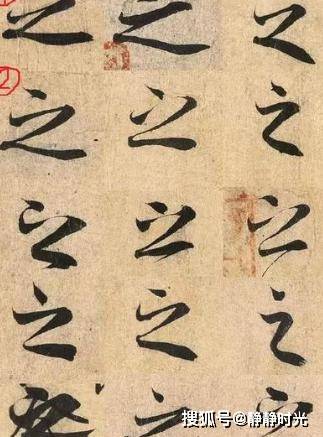 之 之 之
②
之 之 之
之 之 之
之 之 之
搜狐号@静静时光